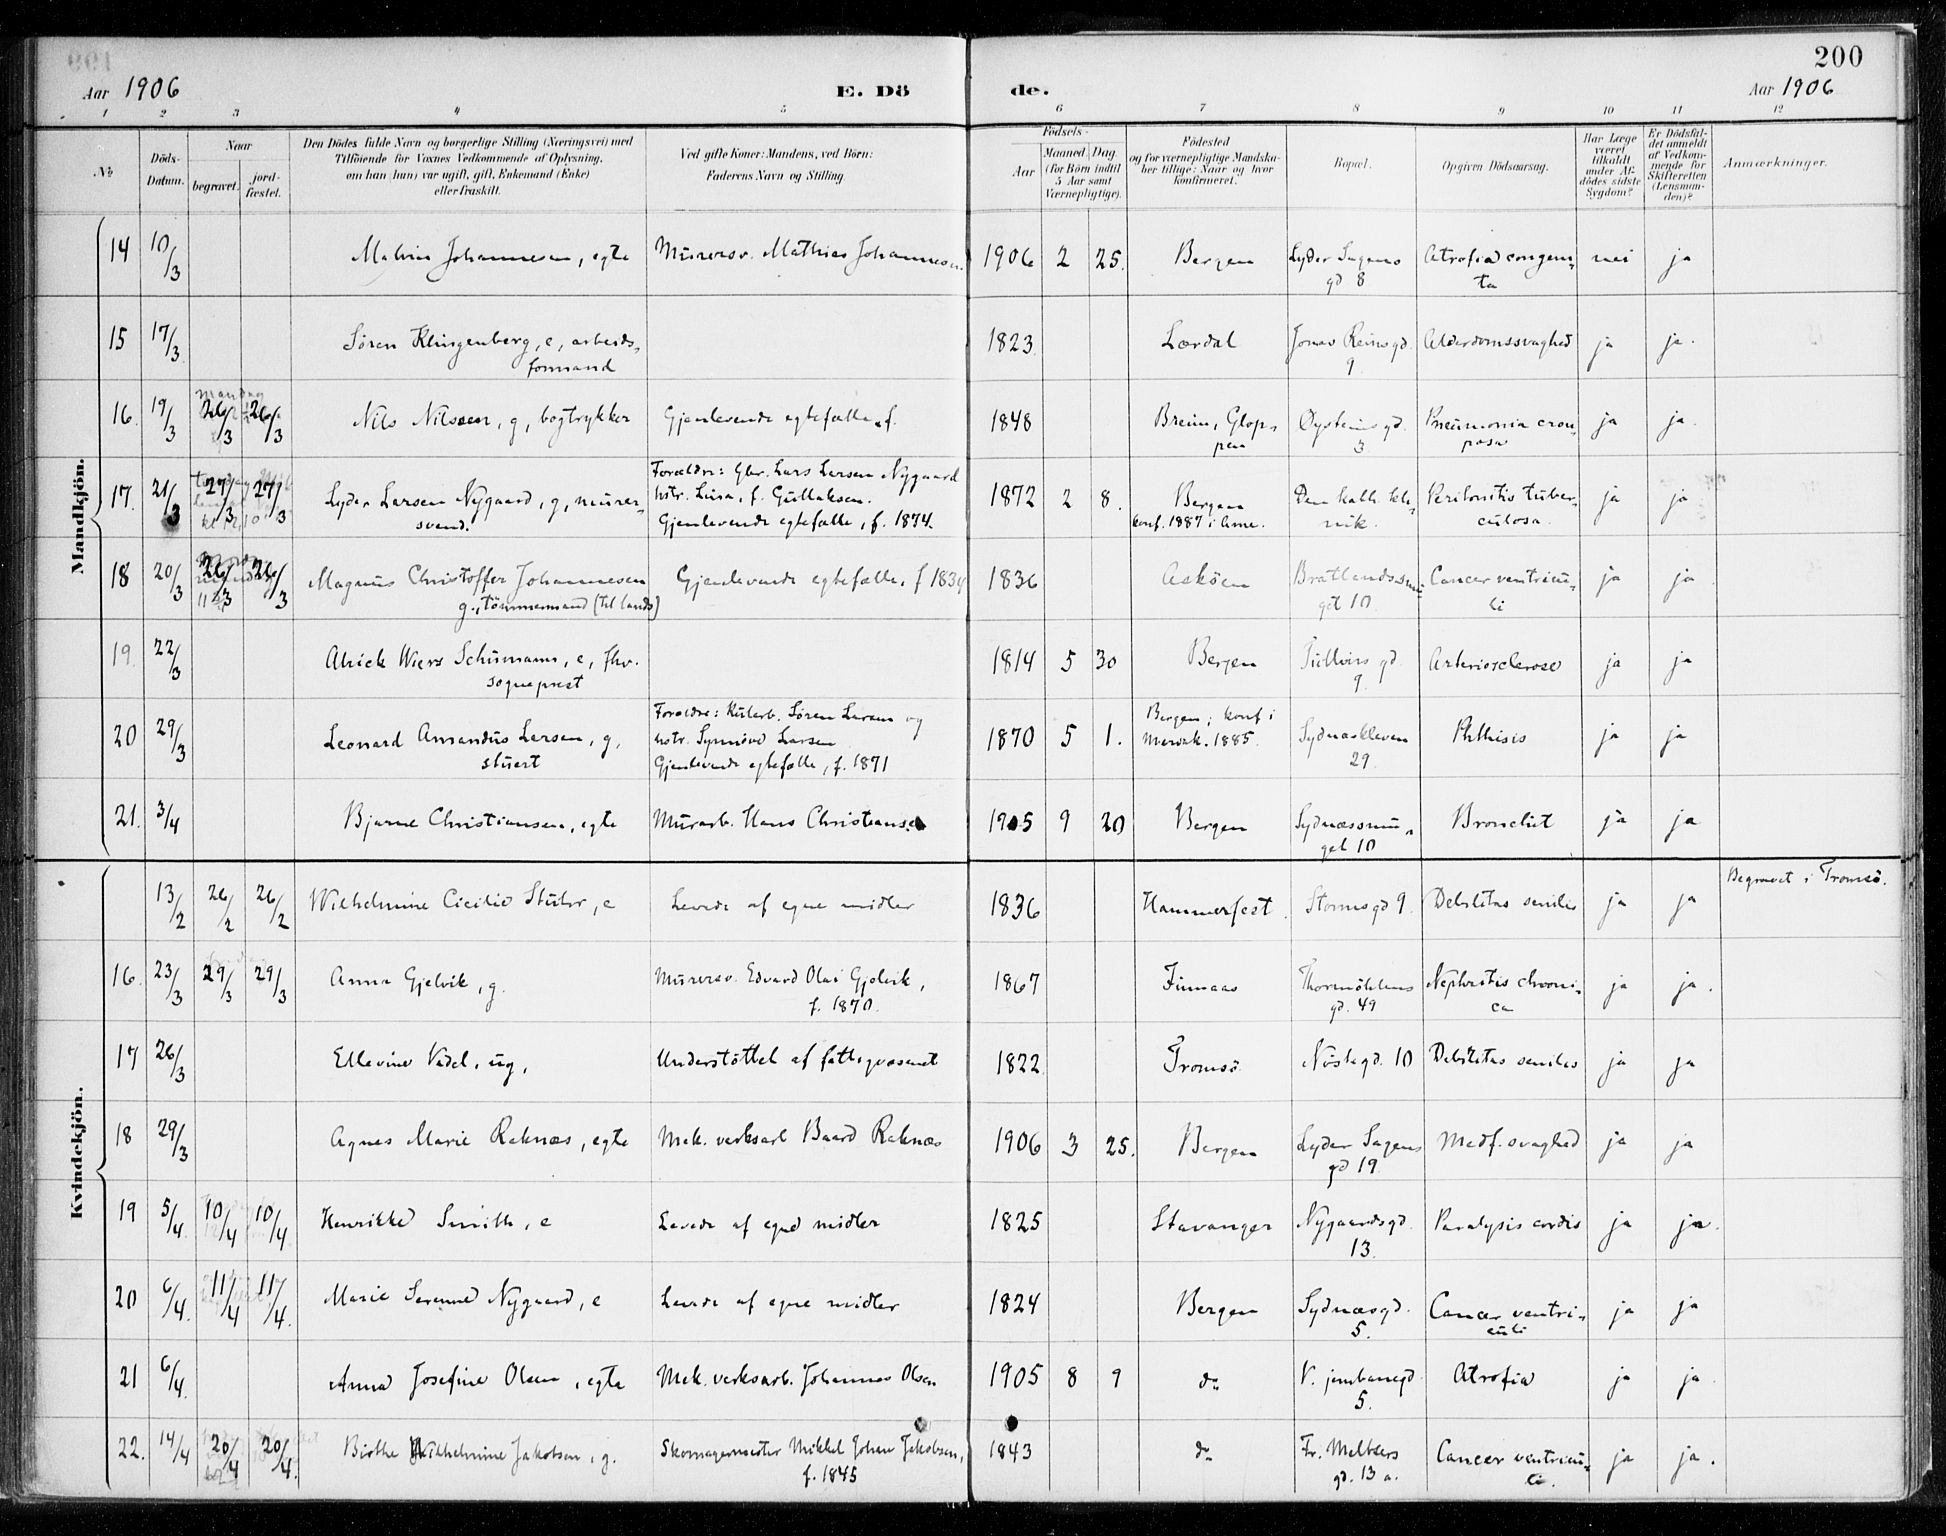 200
Aar 1906 E. Dö de. Aar 1906
1 2 3 4 5 6 7 8 9 10 11 12
No
Döds-Datum.
Naar begravet. jordfæstet.
Den Dödes fulde Navn og borgerlige Stilling (Næringsvei) med
Tilföiende for Voxnes Vedkommende af Oplysning,
om han (hun) var ugift, gift, Enkemand (Enke)
eller fraskilt.
Ved gifte Koner: Mandens, ved Börn:
Faderens Navn og Stilling
Födsels-
Aar Maaned. Dag.
(for Börn indtil 5 Aar samt Værnepligtige).
Födested
og for værnepligtige Mandskaber tillige: Naar og hvor konfirmeret.
Bopæl.
Opgiven Dödsaarsag.
Har Læge været tilkaldt under Afdödes sidste Sygdom?
Er Dödsfaldet anmeldt af Vedkommende for Skifteretten (Lensmanden)?
Anmærkninger.
Mandkjön.
14 10/3 Malvin Johannesen, egte Murersv. Mathias Johannesen. 1906 2 25. Bergen Lyder Sagens gd 8 Atrofia congenita nei ja
15 17/3 Sören Klingenberg, e, arbeidsformand 1823 Lærdal Jonas Reinsgd. 9 Alderdomssvaghed ja ja.
16. 19/3 26/3 26/3 Nils Nilssen, g, bogtrykker Gjenlevende egtefælle f. 1848 Breim, Gloppen Øysteinsgd. 3 Pneumonia crouposa ja ja.
17. 21/3 27/3 27/3 Lyder Larsen Nygaard, g, murersvend. Forældre: Gbr. Lars Larsen Nygaard
hstr. Lina, f. Gullaksen.
Gjenlevende egtefælle, f. 1874. 1872 2 8. Bergen
konf. 1887 i Arne. Den kath. klinik. Peritonitis tuberculosa. ja ja
18 20/3 26/3 26/3 Magnus Christoffer Johannesen
g., tömmermand (til lands) Gjenlevende egtefælle, f 1834 1836 Asköen Bratlandssmuget 10. Cancer ventriculi ja ja
19. 22/3 Alrick Wiers Schumann, e, fhv. sogneprest 1814 5 30 Bergen Tullins gd. 9. Arteriosclerose ja ja
20 29/3 Leonard Amandus Larsen, g, stuert Forældre: Kularb. Sören Larsen og
hstr. Synnöve Larsen
Gjenlevende egtefælle, f. 1871 1870 5 1. Bergen; konf i
Mariak. 1885. Sydnæskleven 29. Phthisis ja ja
21. 3/4 Bjarne Christiansen, egte Murarb. Hans Christiansen 1905 9 20 Bergen Sydnæssmuget 10 Bronchit ja ja
Kvindekjön.
13/2 26/2 26/2 Wilhelmine Cicilie Stuhr, e Levede af egne midler 1836 Hammerfest. Stormsgd 9. Debilitas senilis ja ja Begravet i Tromsö.
16. 23/3 29/3 29/3 Anna Gjelvik, g. Murersv. Edvard Olai Gjelvik,
f. 1870. 1867 Finnaas Thormöhlens gd. 49 Nephritis chronica ja ja.
17 26/3 Ellevine Vadel, ug, Understöttet af fattigvæsenet 1822 Tromsö. Nöstegd. 10 Debilitas senilis ja ja
18 29/3 Agnes Marie Raknæs, egte Mek. verksarb Baard Raknæs 1906 3 25. Bergen Lyder Sagens gd 19. Medf. svaghed ja ja
19 5/4 10/4 10/4 Henrikke Smith, e Levede af egne midler 1825 Stavanger Nygaardsgd. 13. Paralysis cordis ja ja.
20 6/4. 11/4 11/4. Marie Serenne Nygaard, e Levede af egne midler 1824 Bergen Sydnæsgd. 5. Cancer ventriculi ja ja
21 6/4. Anna Josefine Olsen, egte Mek. verksarb. Johannes Olsen 1905 8 9 do V. jernbanegd. 5. Atrofia ja ja.
22. 14/4 20/4 20/4. Birthe Wilhelmine Jakobsen, g. Skomagermester Mikkel Johan Jakobsen,
f. 1845 1843 do Fr. Meltzers gd. 13 a. Cancer ventriculi. ja ja.